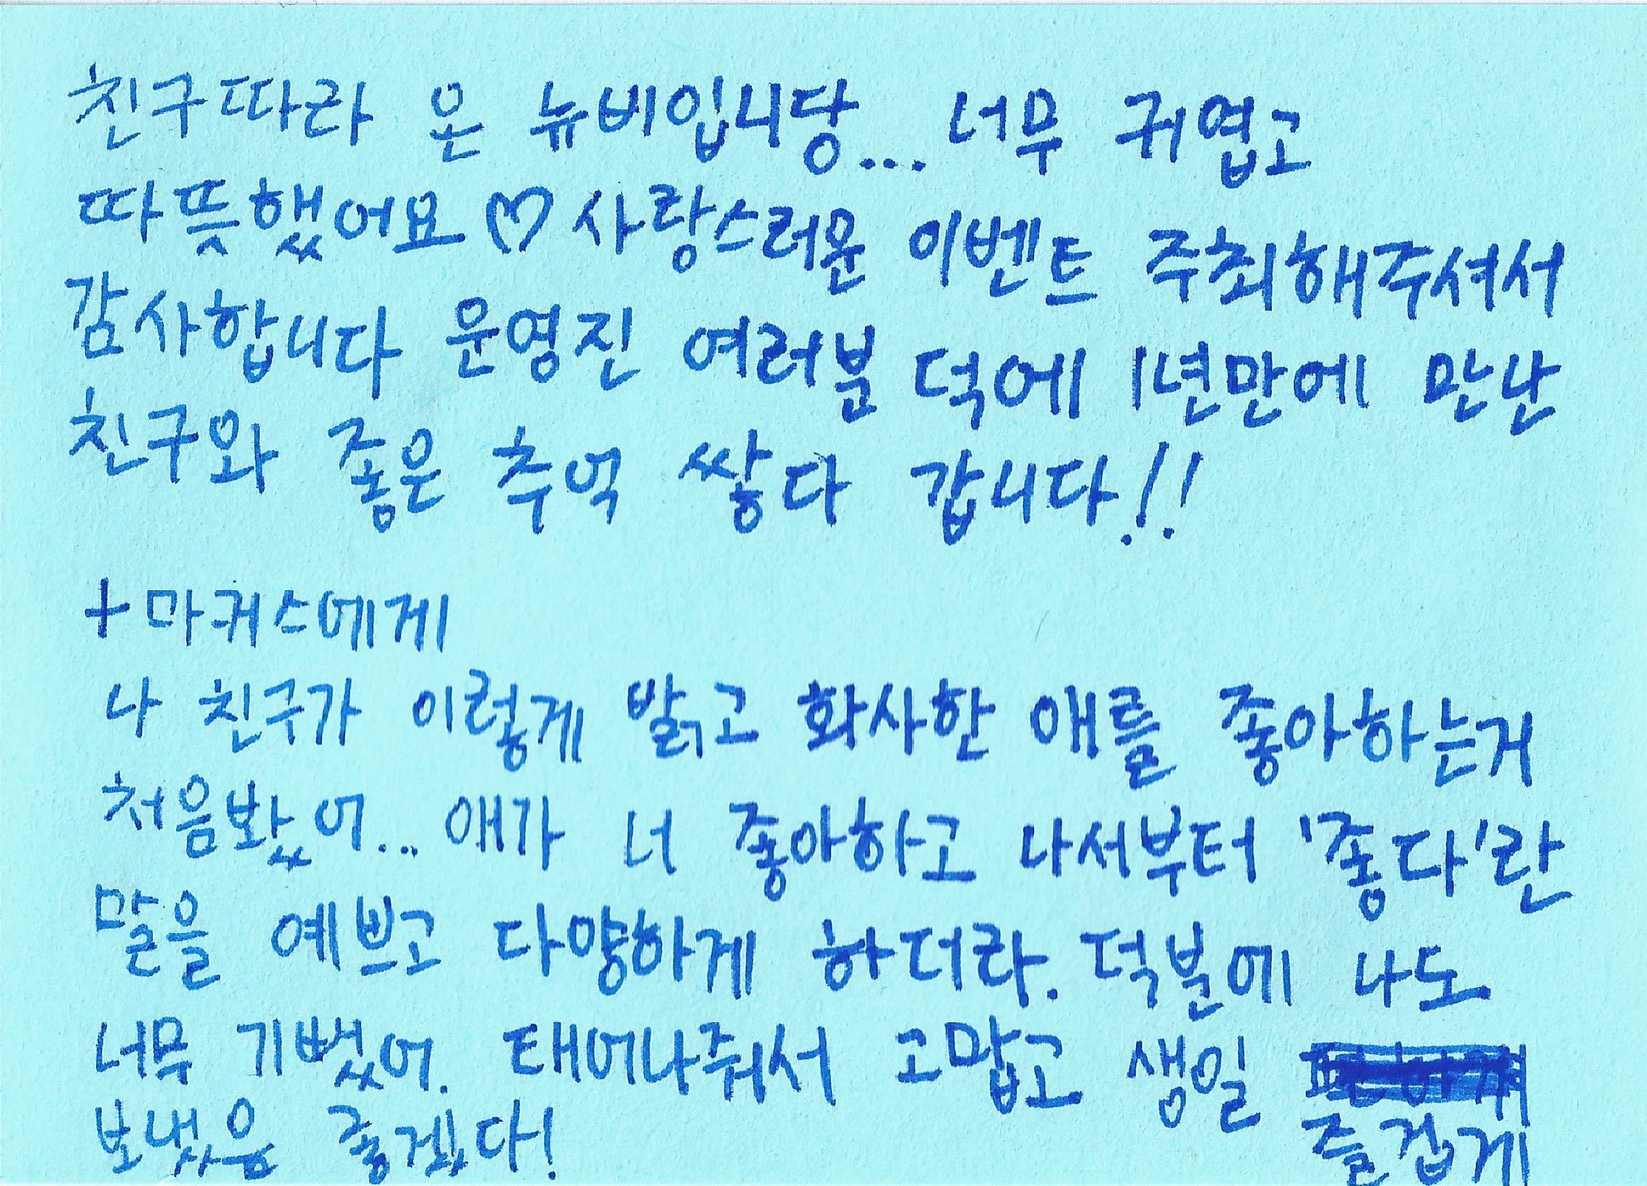 친구따라 온 뉴비입니당... 너무 귀엽고
따뜻했어요 ♡ 사랑스러운 이벤트 주최해주셔서
감사합니다 운영진 여러분 덕에 1년만에 만난
친구와 좋은 추억 쌓다 갑니다!!
+마퀴스에게
나 친구가 이렇게 밝고 화사한 애를 좋아하는거
처음봤어... 얘가 너 좋아하고 나서부터 '좋다'란
말을 예쁘고 다양하게 하더라. 덕분에 나도
너무 기뻤어. 태어나줘서 고맙고 생일
즐겁게
보냈음 좋겠다!